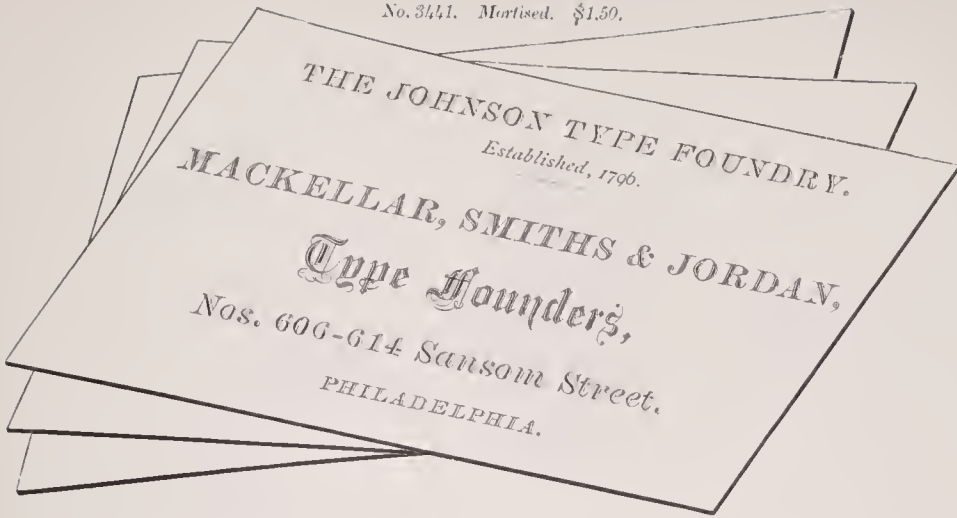 No. 3441. Mortised. $1.50.
THE JOHNSON TYPE FOUNDRY.
Established, 1796.
MACKELLAR, SMITHS & JORDAN,
Type Founders,
Nos. 606-614 Sansom Street.
PHILADELPHIA.